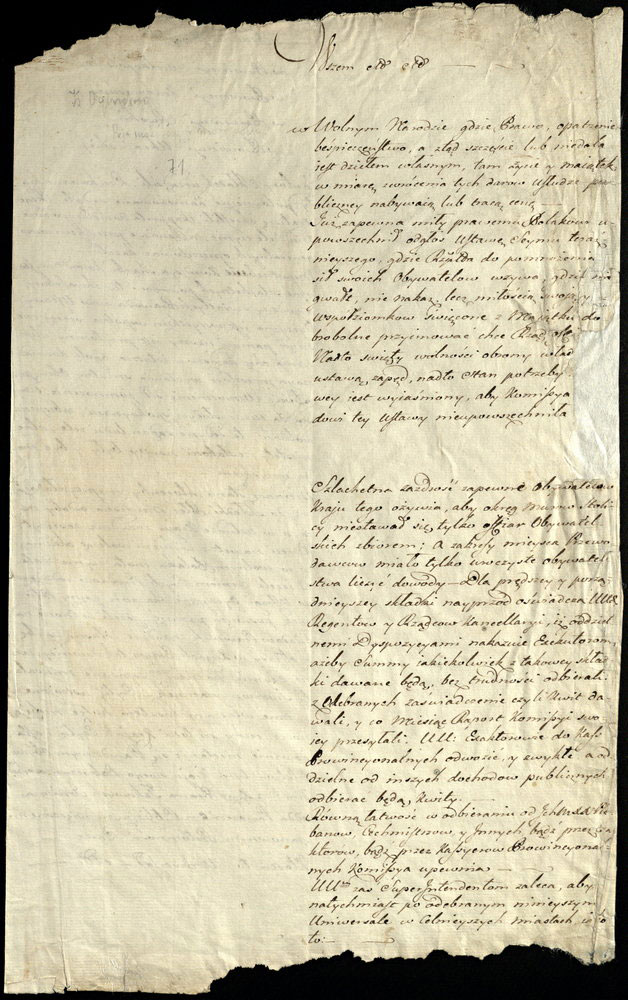 Wszem etc etc
71
w Wolnym Narodzie gdzie Prawo, opatrzenie
beśpieczeństwo, a ztąd szczęście lub niedola
iest dziełem własnym, tam życie y maiątek
w miarę zwrócenia tych darow usłudze pu
bliczney nabywaią lub tracą cenę
Już zapewna miły prawemu Polakowi u
powszechnił odgłos Ustawę Seymu teraź
nieyszego, gdzie Rząd do pomnożenia
sił swoich Obywatelow wzywa, gdzie nie
gwałt, nie nakaz, lecz miłością swoich
Wspołziomkow święcone z Maiątku do
brobolne przyimować chce Rząd
Nadto święty wolności obrony
ustawą zapęd, nadto Stan potrzeby
wey iest wyiaśniony, aby Komissya
tey Ustawy nieupowszechniła
Szlachetna zazdrość zapewne Obywatelow
Kraiu tego ożywia, aby okręg Murow Stoli
cy niestawał się tylko offiar Obywatel
skich zbiorem; a zakresy mieysca Prawo
dawcow miało tylko uroczyste obywatel
stwa liczyć dowody — Dla prędszey y porzą
dnieyszey składki nayprzod oświadcza
Regentow y Rządcow Kancellaryi, iż oddziel
nemi Dyspozycyami nakazuie Exekutorom,
ażeby Summy iakiekolwiek z takowey skład
ki dawane będą, bez trudności odbierali
z Odebranych zaświadczenie czyli kwit da
wali, y co Miesiąc Raport Komissyi swo
iey przesyłali. UU: Exaktorowie do Kass
Prowincyonalnych odwozić, y zwykłe a od
dzielne od inszych dochodow publicznych
odbierać będą Kwity.
Rowną łatwość w odbieraniu od Ple
banow, Cechmistrzow, y Innych bądź przez Exa
ktorow, bądź przez Kassyerow Prowincyonal
nych Komissya upewnia —
UU zaś SuperIntendentom zaleca, aby
natychmiast po odebranym ninieyszym
Uniwersale w Celnieyszych Miastach, iako
to: —